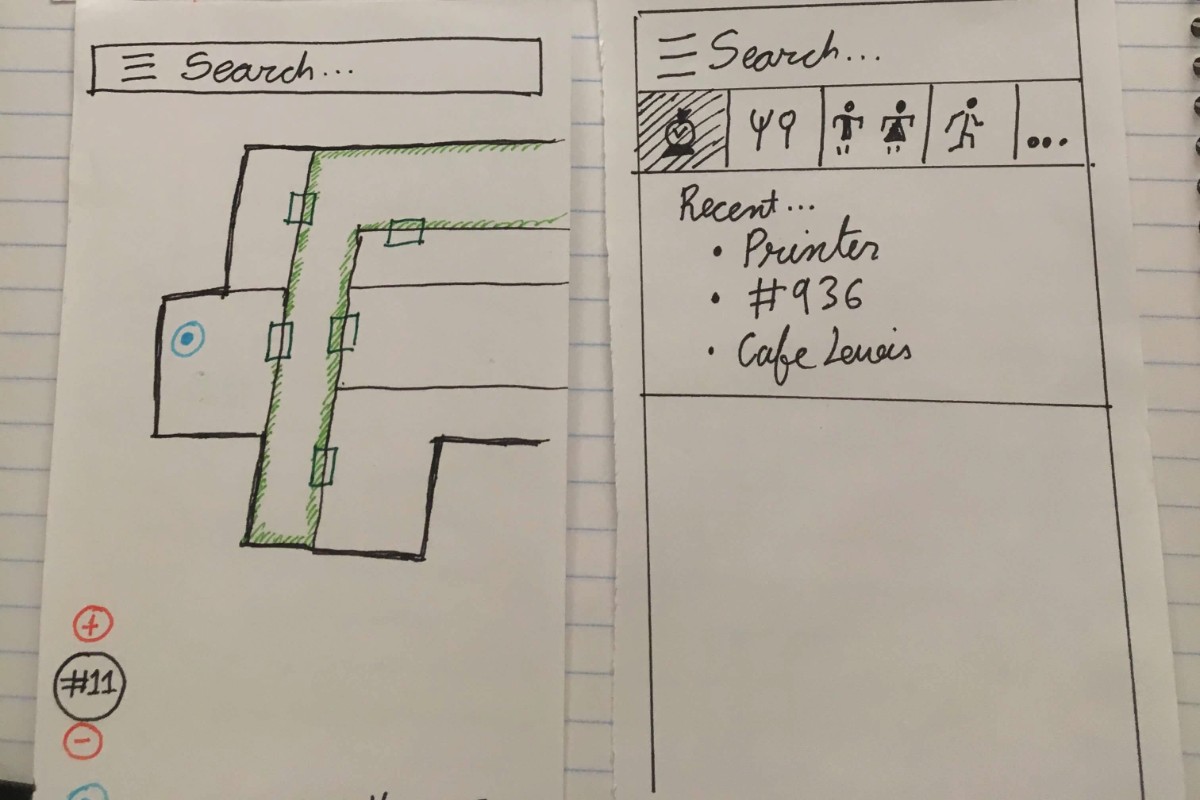 Search...
#11
Search...
...
Recent...
• Printer
• #936
• Cafe